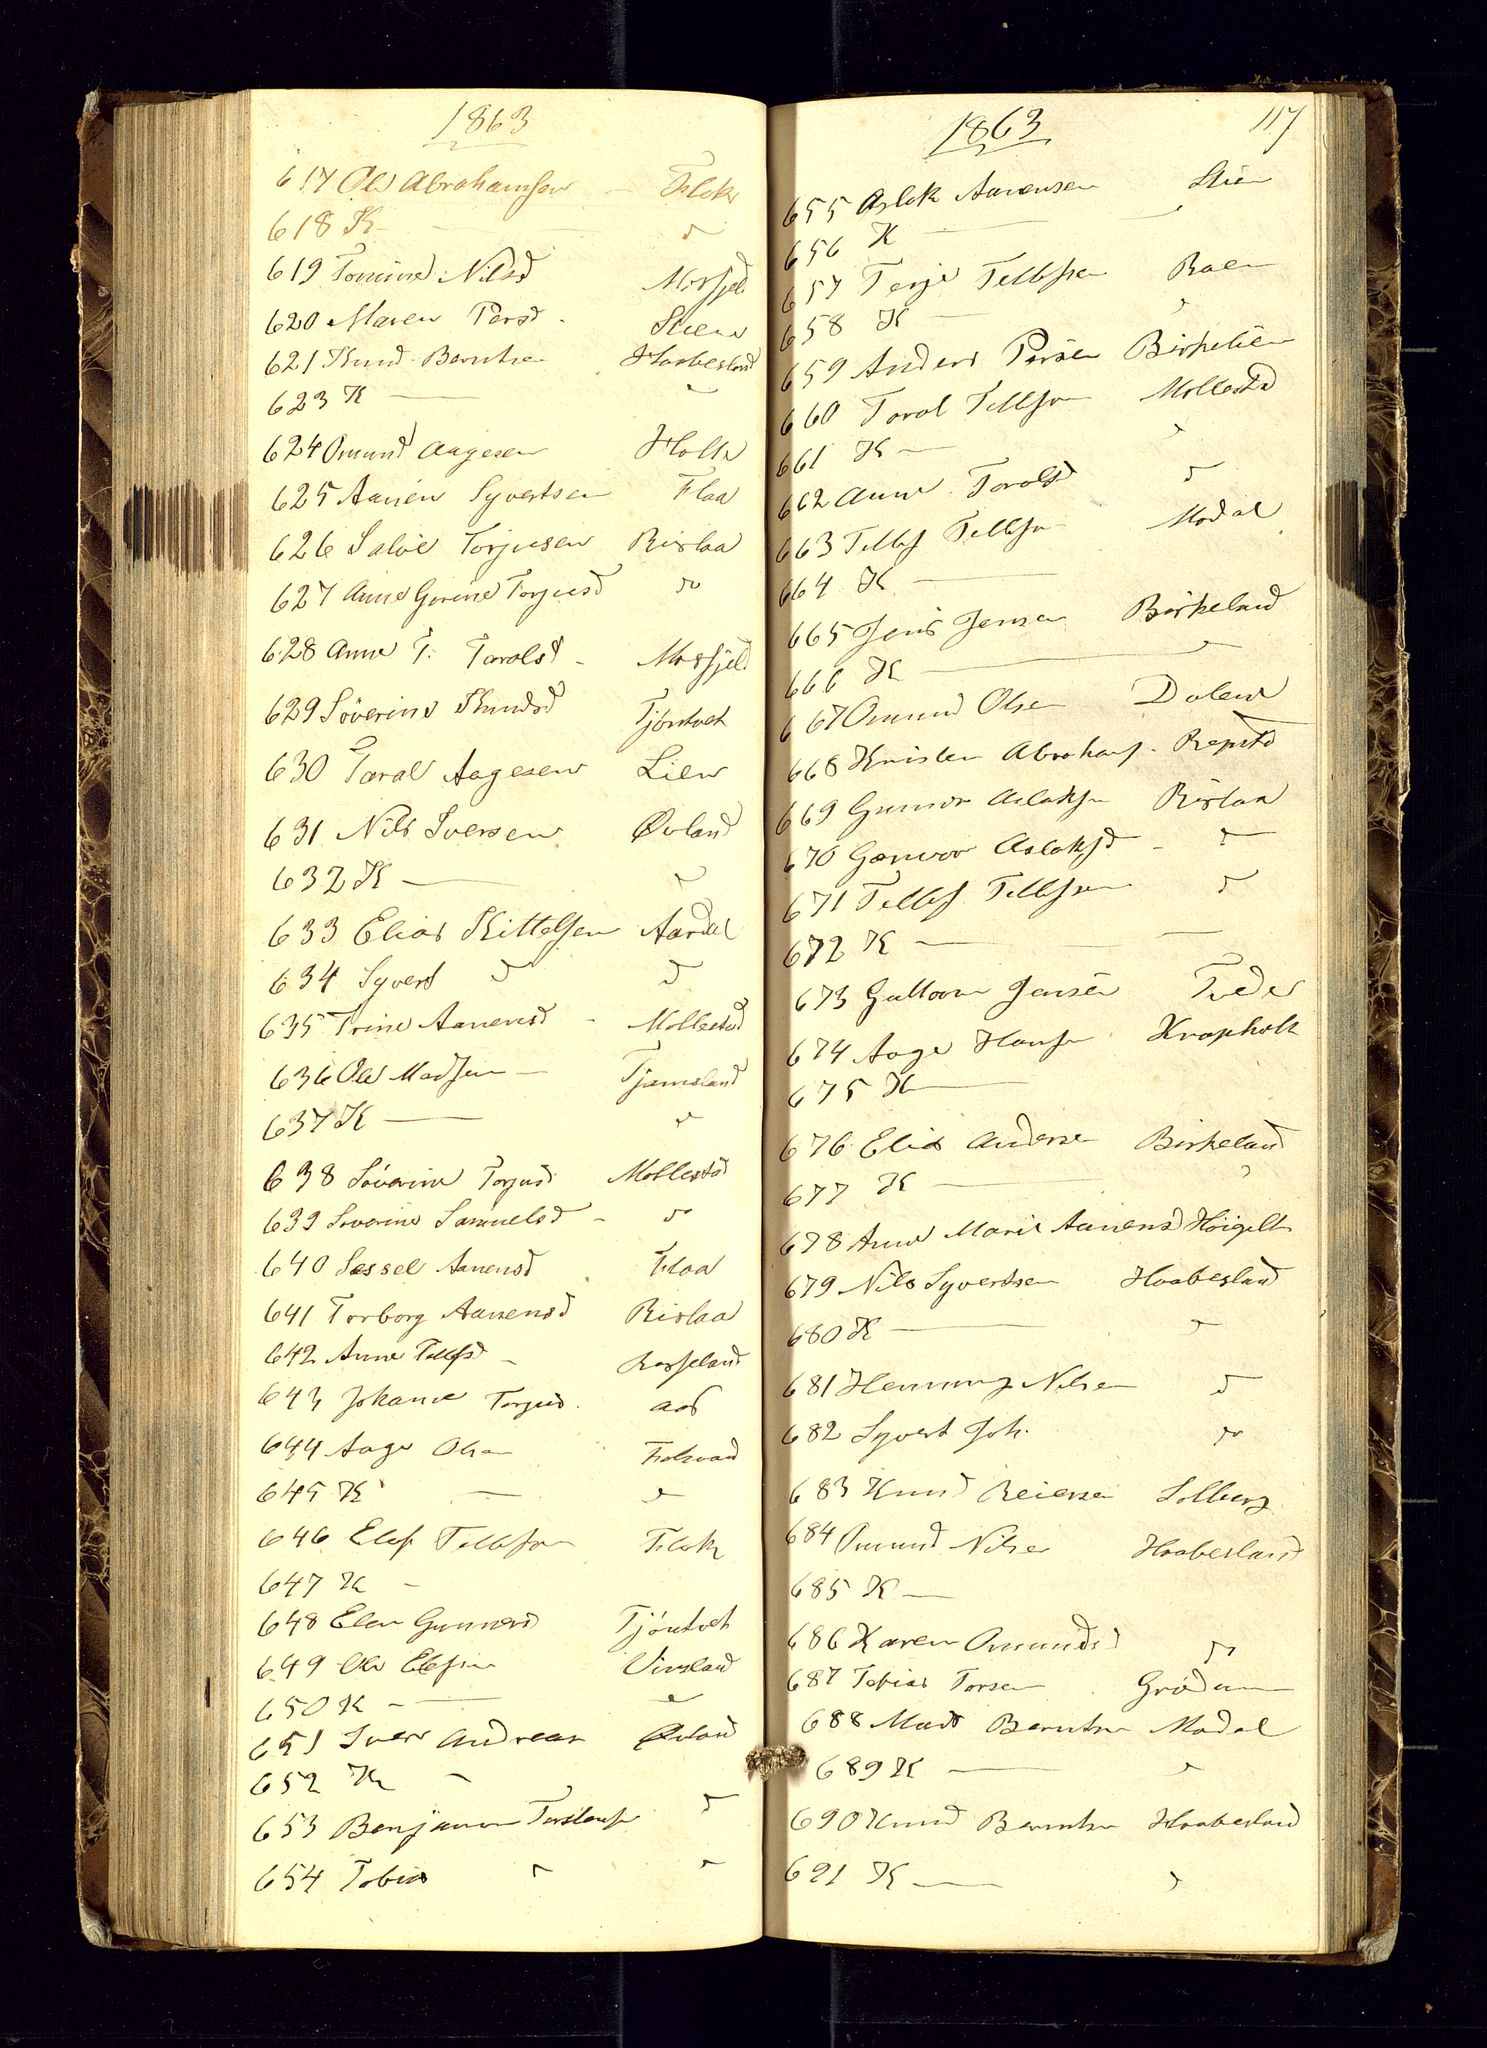 1863
617 Ole Abrahamsen – Flak
618 K – – do
619 Tomine Nilsd Mosfjeld
620 Maren Persd. Stien
621 Knud Berntsen Haabesland
623 K –
624 Omund Aagesen Holte
625 Aanen Syvertsen Flaa
626 Salve Torjusen Rislaa
627 Anne Gurine Torjusd do
628 Anne T. Taralsd – Mosfjeld
629 Söverine Knudsd Tjöntvet
630 Taral Aagesen Lien
631 Nils Iversen Øvland
632 K –
633 Elias Kittelsen Aardal
634 Syvert do do
635 Trine Aanensd – Mollestad
636 Ole Madsen – Tjomsland
637 K –
638 Söverine Torjusd Mollestd
639 Severine Samuelsd – do
640 Sessel Aanensd Flaa
641 Torborg Aanensd Rislaa
642 Anne Tellfsd – Rosseland
643 Johanne Torjusd. Aas
644 Aage Olsen
645 K –
646 Elef Tellefsen Flak
647 K –
648 Elen Gunnersd Tjöntvet
649 Ole Elefsen Vivsland
650 K –
651 Iver Andreas Øvland
652 K –
653 Benjamin Torstensen do
654 Tobias
1863 117
655 Aslak Aanensen Stien
656 K –
657 Terje Tellefsen Roen
658 K –
659 Anders Persen Birkelien
660 Taral Tellefsen Mollestd
661 K –
662 Anne Taralsd do
663 Tellef Tellefsen Modal
664 K –
665 Jens Jensen Birkeland
666 K –
667 Omund Olsen Dalene
668 Kristen Abrahams. Repstd
669 Gunvor Aslaksen Rislaa
670 Gunvor Aslaksd – do
671 Tellef Tellefsen do
672 K –
673 Guttorm Jensen Tveder
674 Aage Hansen Krapholt
675 K –
676 Elias Andersen Birkeland
677 K –
678 Anne Marie Aanensd Höigilt
679 Nils Syvertsen Haabesland
680 K –
681 Henning Nilsen do
682 Syvert Joh. do
683 Knud Reiersen Solberg
684 Omund Nilsen Haabesland
685 K –
686 Karen Omundsd do
687 Tobias Torsen Grödum
688 Mads Berntsen Modal
689 K –
690 Knud Berntsen Haabesland
691 K –